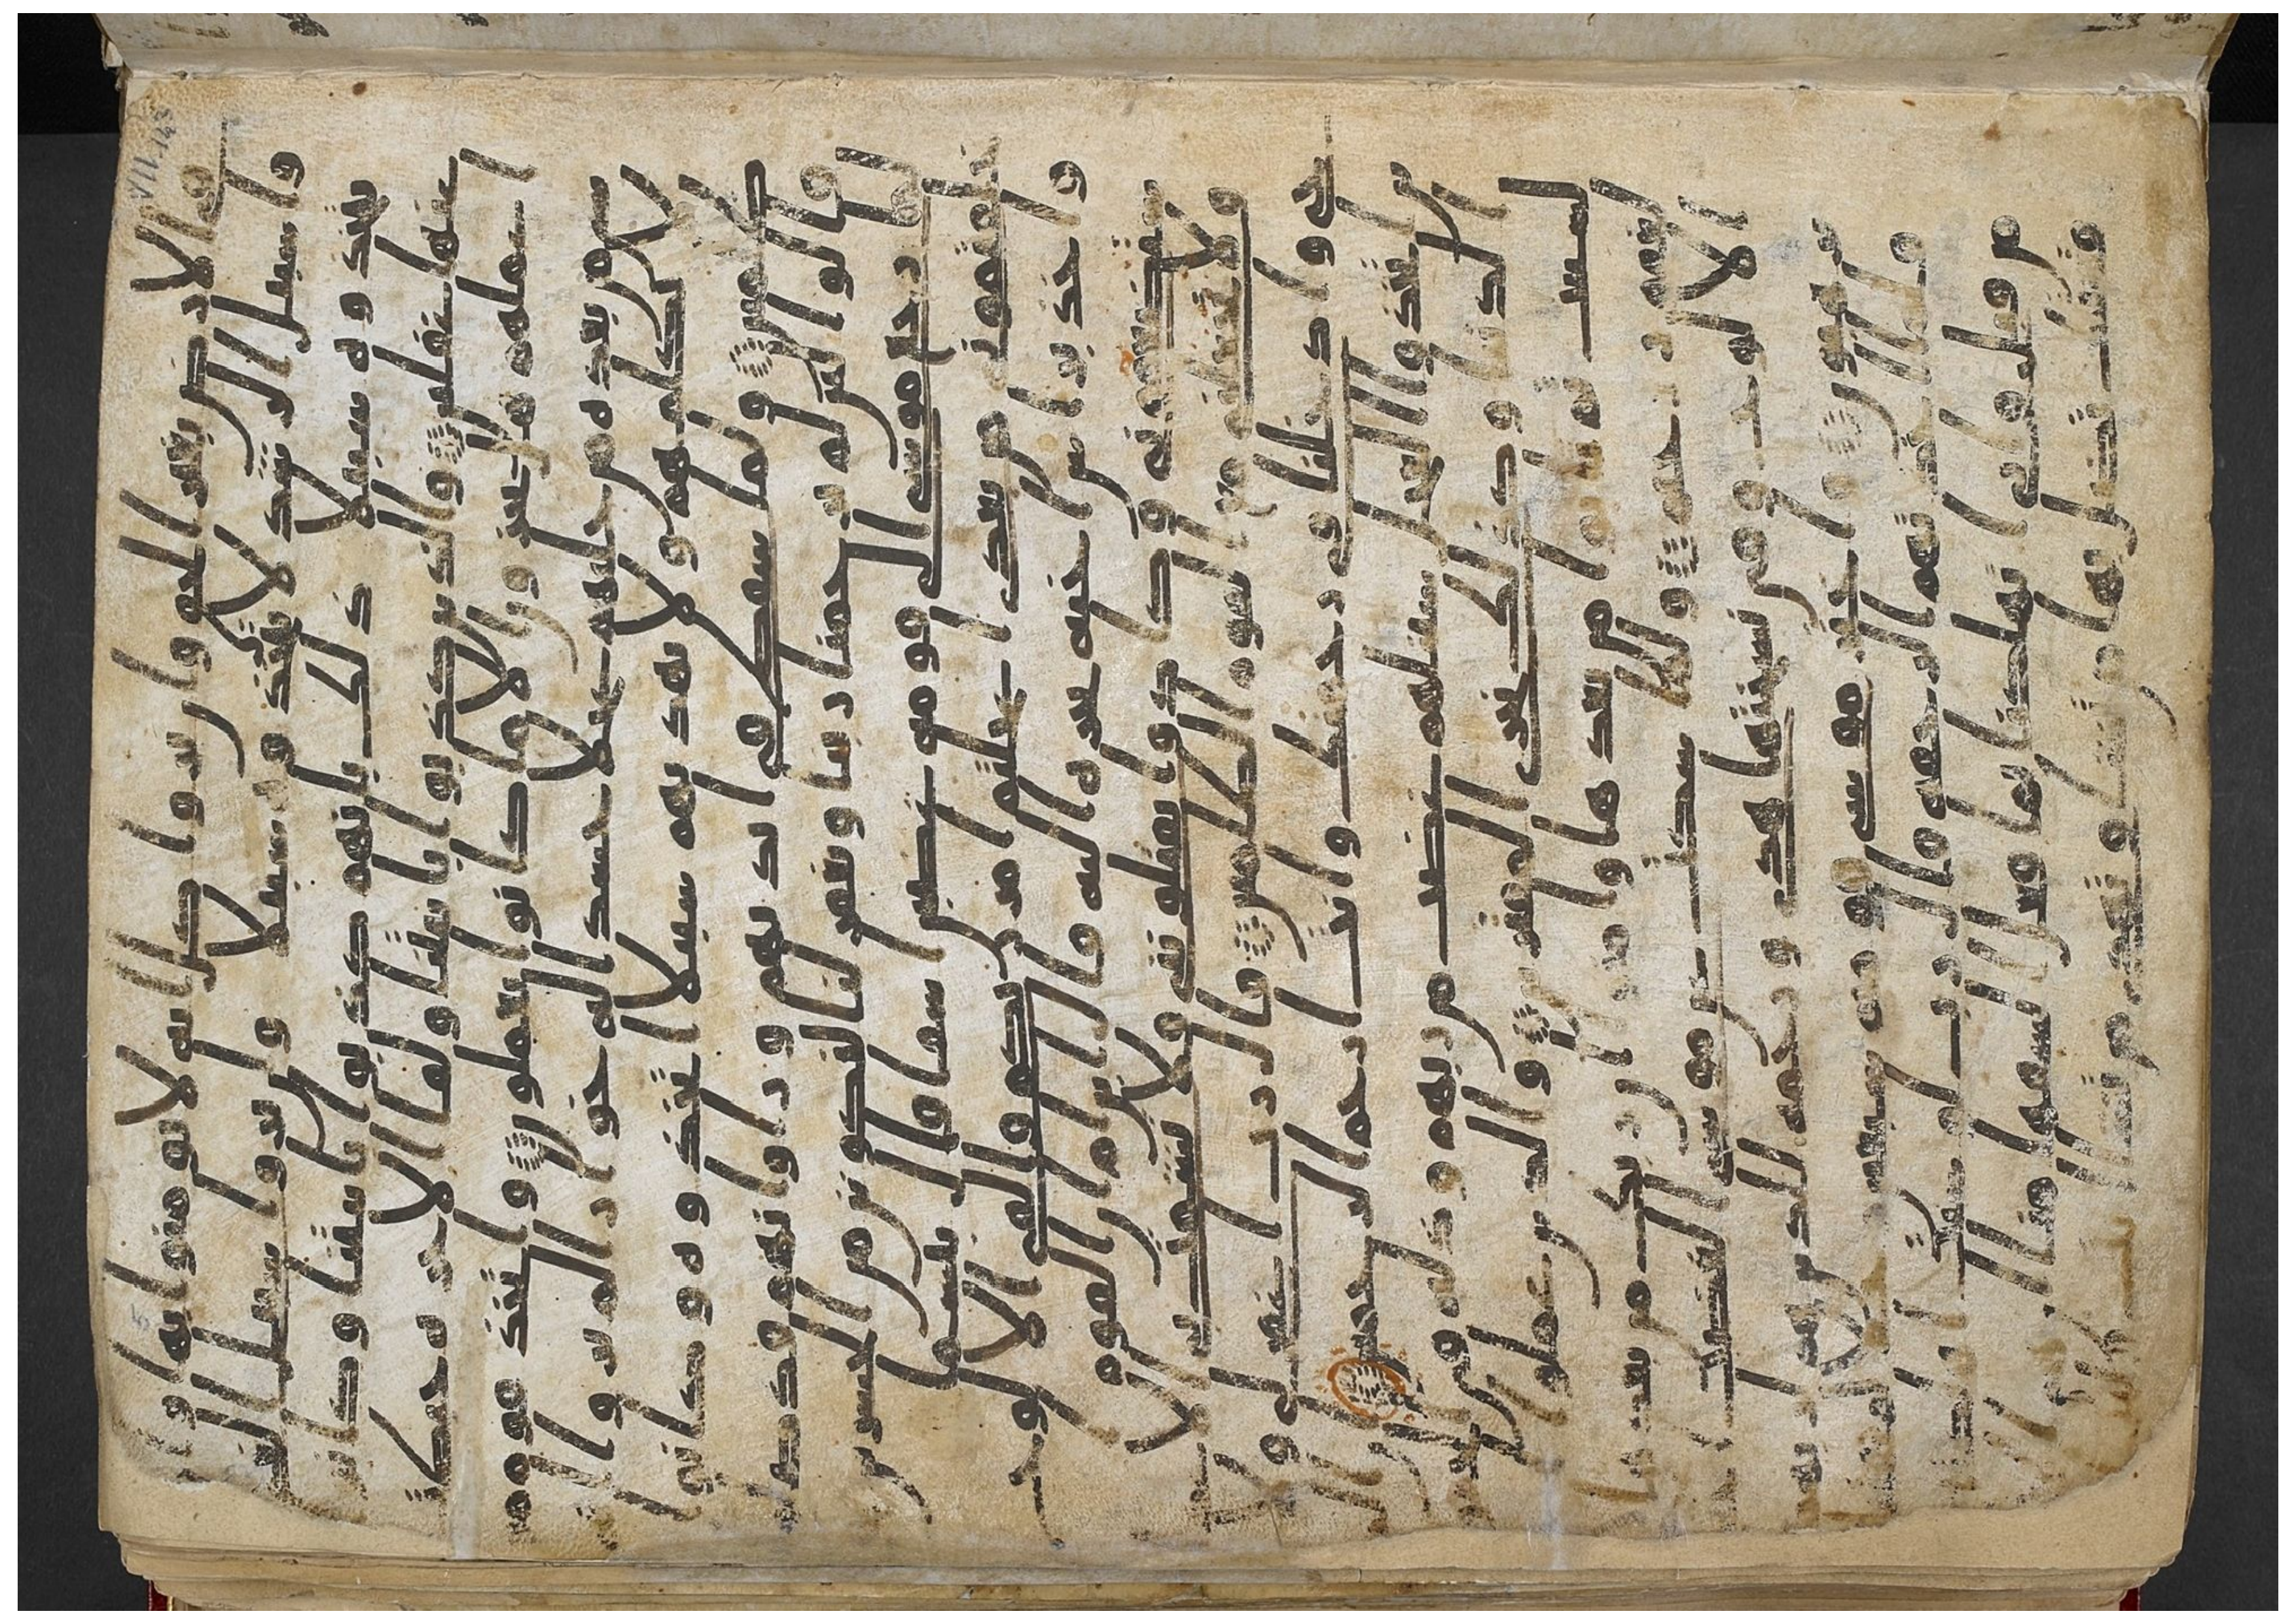 فى الارض بغير الحق وان يروا كل ايه لا يومنوا بها وان ير
وا سبيل الرشد لا يتخذوه سبيلا وان يروا سبيل الغى
يتخذوه سبيلا ذلك بانهم كذبوا بايتنا وكانوا
عنها غفلين والذين كذبوا بايتنا ولقا الاخره حبطت
اعملهم هل يجزون الا ما كانوا يعملون واتخذ قوم مو
سى من بعده من حليهم عجلا جسدا له خوار الم يروا ا
نه لا يكلمهم ولا يهديهم سبيلا اتخذوه وكانوا
ظلمين ولما سقط فى ايديهم وراوا انهم قد ضلو
ا قالوا لئن لم يرحمنا ربنا ويغفر لنا لنكونن من الخسرين
ولما رجع موسى الى قومه غضبن اسفا قال بئسما
خلفتمونى من بعدى اعجلتم امر ربكم والقى الالوح
واخذ براس اخيه يجره اليه قال ابن ام ان القوم
استضعفونى وكادوا يقتلوننى فلا تشمت بى الا
عدا ولا تجعلنى مع القوم الظلمين قال رب اغفر لى و
لاخى وادخلنا فى رحمتك وانت ارحم الرحمين
ان الذين اتخذوا العجل سينلهم غضب من ربهم وذله فى
الحيوه الدنيا وكذلك نجزى المفترين والذين عملوا
السيت ثم تابوا من بعدها وامنوا ان ربك من بعدها
لغفور رحيم ولما سكت عن موسى الغضب اخذ
الالوح وفى نسختها هدى ورحمه للذين هم لربهم
يرهبون واختر موسى قومه سبعين رجلا لميقتنا
فلما اخذتهم الرجفه قال رب لو شئت اهلكتهم
من قبل وايى اتهلكنا بما فعل السفها منا ان
فتنتك تضل بها من تشا وتهدى من تشا
VII. 143